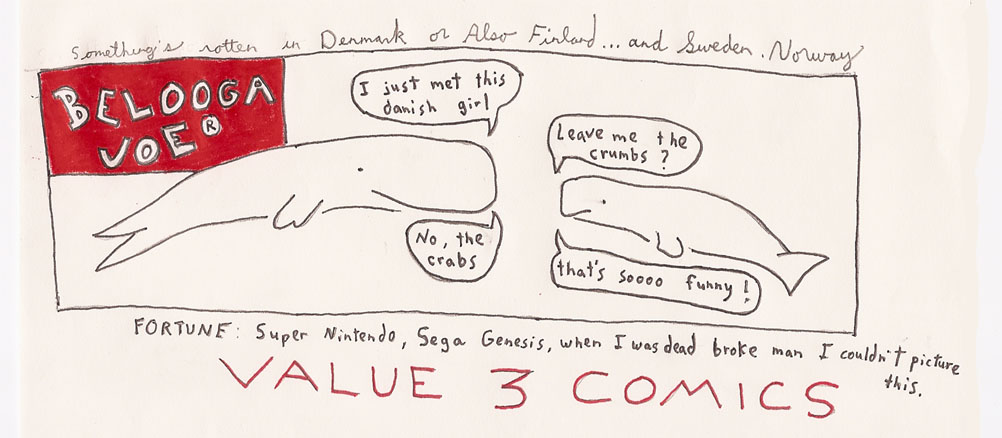 Something's rotten in Denmark or Also Finland... and Sweden. Norway
BELOOGA
JOE®
I just met this
danish girl
Leave me the
crumbs?
No, the
crabs
that's soooo funny!
FORTUNE: Super Nintendo, Sega Genesis, when I was dead broke man I couldn't picture
this.
VALUE 3 COMICS